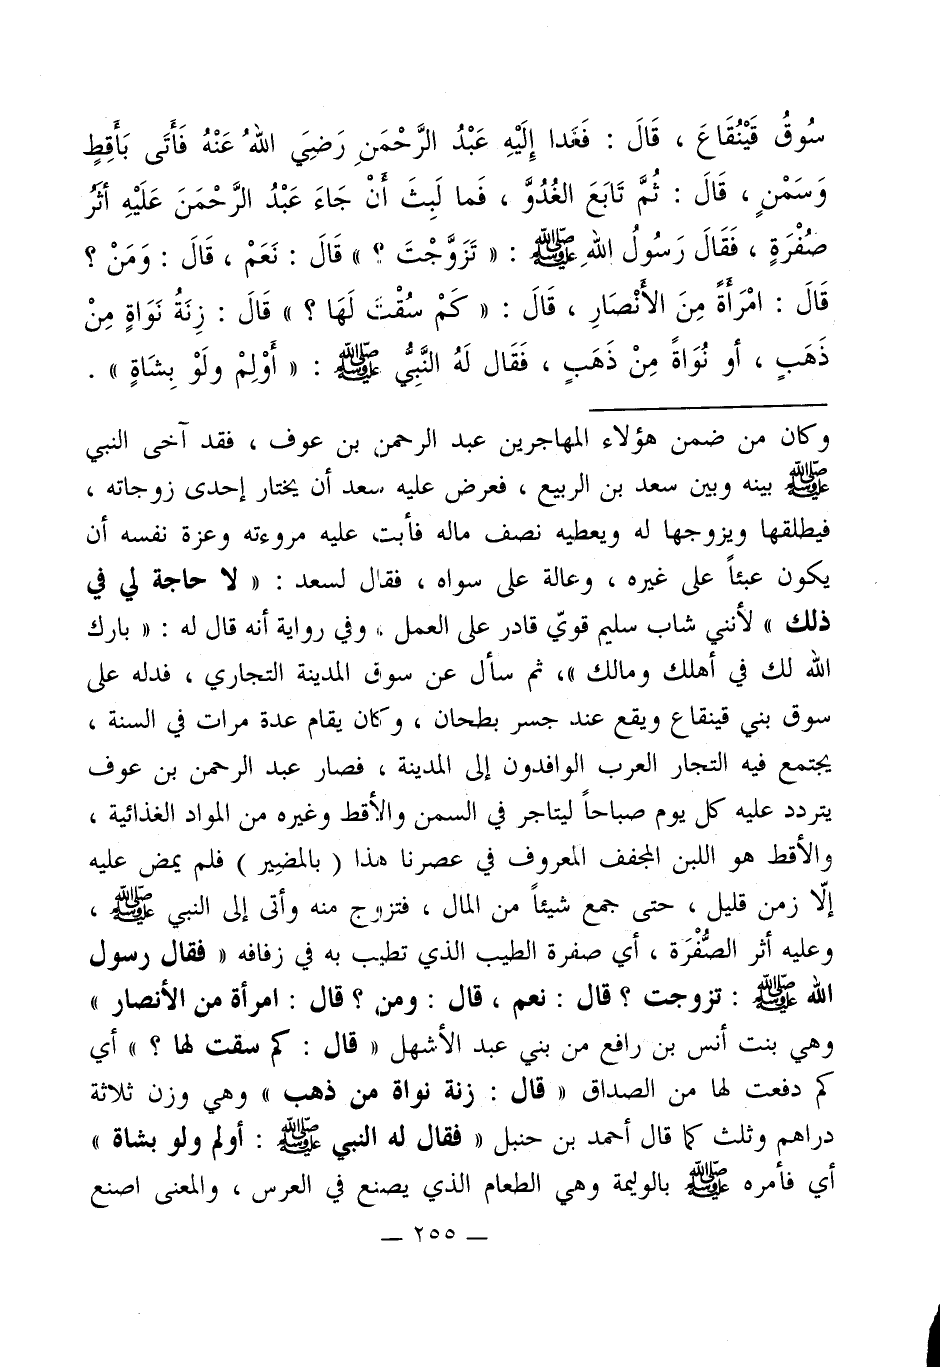 سُوقُ قَيْنُقَاعَ ، قَالَ : فَغَدا إِلَيْهِ عَبْدُ الرَّحْمَنِ رَضِيَ اللهُ عَنْهُ فَأَتَى بَأَقِطٍ
وَسَمْنٍ ، قَالَ : ثُمَّ تَابَعَ الغُدُوَّ ، فَما لَبِثَ أَنْ جَاءَ عَبْدُ الرَّحْمَنَ عَلَيْهِ أثَرُ
صُفْرَةٍ ، فَقَالَ رَسُولُ اللهِ ﷺ : « تَزَوَّجْتَ ؟ » قَالَ : نَعَمْ ، قَالَ : وَمَنْ ؟
قَالَ : امْرَأَةً مِنَ الأَنْصَارِ ، قَالَ : « كَمْ سُقْتَ لَهَا ؟ » قَالَ : زِنَةُ نَوَاةٍ مِنْ
ذَهَبٍ ، أو نُوَاةً مِنْ ذَهَبٍ ، فَقَال لَهُ النَّبِيُّ ﷺ : « أَوْلِمْ ولَوْ بِشَاةٍ » .
وكان من ضمن هؤلاء المهاجرين عبد الرحمن بن عوف ، فقد آخى النبي
ﷺ بينه وبين سعد بن الربيع ، فعرض عليه سعد أن يختار إحدى زوجاته ،
فيطلقها ويزوجها له ويعطيه نصف ماله فأبت عليه مروءته وعزة نفسه أن
يكون عبئاً على غيره ، وعالة على سواه ، فقال لسعد : « لا حاجة لي في
ذلك » لأنني شاب سليم قويّ قادر على العمل ، وفي رواية أنه قال له : « بارك
الله لك في أهلك ومالك »، ثم سأل عن سوق المدينة التجاري ، فدله على
سوق بني قينقاع ويقع عند جسر بطحان ، وكان يقام عدة مرات في السنة ،
يجتمع فيه التجار العرب الوافدون إلى المدينة ، فصار عبد الرحمن بن عوف
يتردد عليه كل يوم صباحاً ليتاجر في السمن والأقط وغيره من المواد الغذائية ،
والأقط هو اللبن المجفف المعروف في عصرنا هذا ( بالمضير ) فلم يمض عليه
إلّا زمن قليل ، حتى جمع شيئاً من المال ، فتزوج منه وأتى إلى النبي ﷺ ،
وعليه أثر الصُّفْرَة ، أي صفرة الطيب الذي تطيب به في زفافه « فقال رسول
الله ﷺ : تزوجت ؟ قال : نعم ، قال : ومن ؟ قال : امرأة من الأنصار »
وهي بنت أنس بن رافع من بني عبد الأشهل « قال : كم سقت لها ؟ » أي
كم دفعت لها من الصداق « قال : زنة نواة من ذهب » وهي وزن ثلاثة
دراهم وثلث كما قال أحمد بن حنبل « فقال له النبي ﷺ : أولم ولو بشاة »
أي فأمره ﷺ بالوليمة وهي الطعام الذي يصنع في العرس ، والمعنى اصنع
— ٢٥٥ —